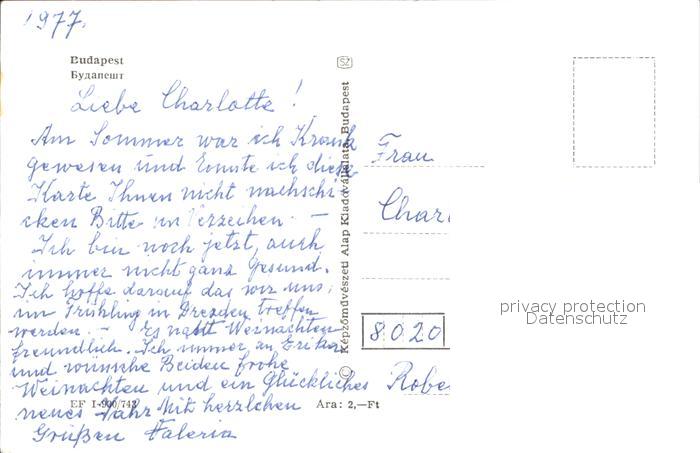 1977.
Budapest
Будапешт
Liebe Charlotte!
Am Sommer war ich Krank
gewesen und konnte ich diese
Karte Ihnen nicht nachschi
cken Bitte um Verzeihen. —
Ich bin noch jetzt, auch
immer nicht ganz Gesund.
Ich hoffe darauf das wir uns,
im Frühling in Dresden treffen
werden. — Es naht Weinachten
freundlich. Ich immer an Erika
und wünsche Beiden frohe
Weinachten und ein Glückliches
neues Jahr Mit herzlchen
Grüßen Valeria
EF I-900/743
Ara: 2,—Ft
SZ
© Képzőművészeti Alap Kiadóvállalata, Budapest
Frau
Charl
8020
Robe
privacy protection
Datenschutz